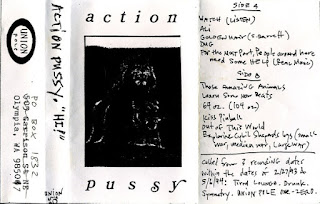 UNION
PILE
ACTION PUSSY: "HE!"
PO BOX 1832
Olympia
WA 98507
action
pussy
SIDE A
WATCH (LISTEN)
Ali
GOLDEN HAIR (S. Barrett)
DMG
For the Most Part, People around here
need Some HELP (Deac Music)
SIDE B
Those Amazing Animals
Learn Some New Beats
69 oz. (104 oz)
Kiss Pinball
Out of This World
Exploring Cybil Shepards legs (small
war, medium war, Large war)
culled from 3 recording dates
within the dates of 2/27/93 to
5/6/94: Tired Lounge. Drunk.
Symmetry. UNION PILE ONE-ZERO.